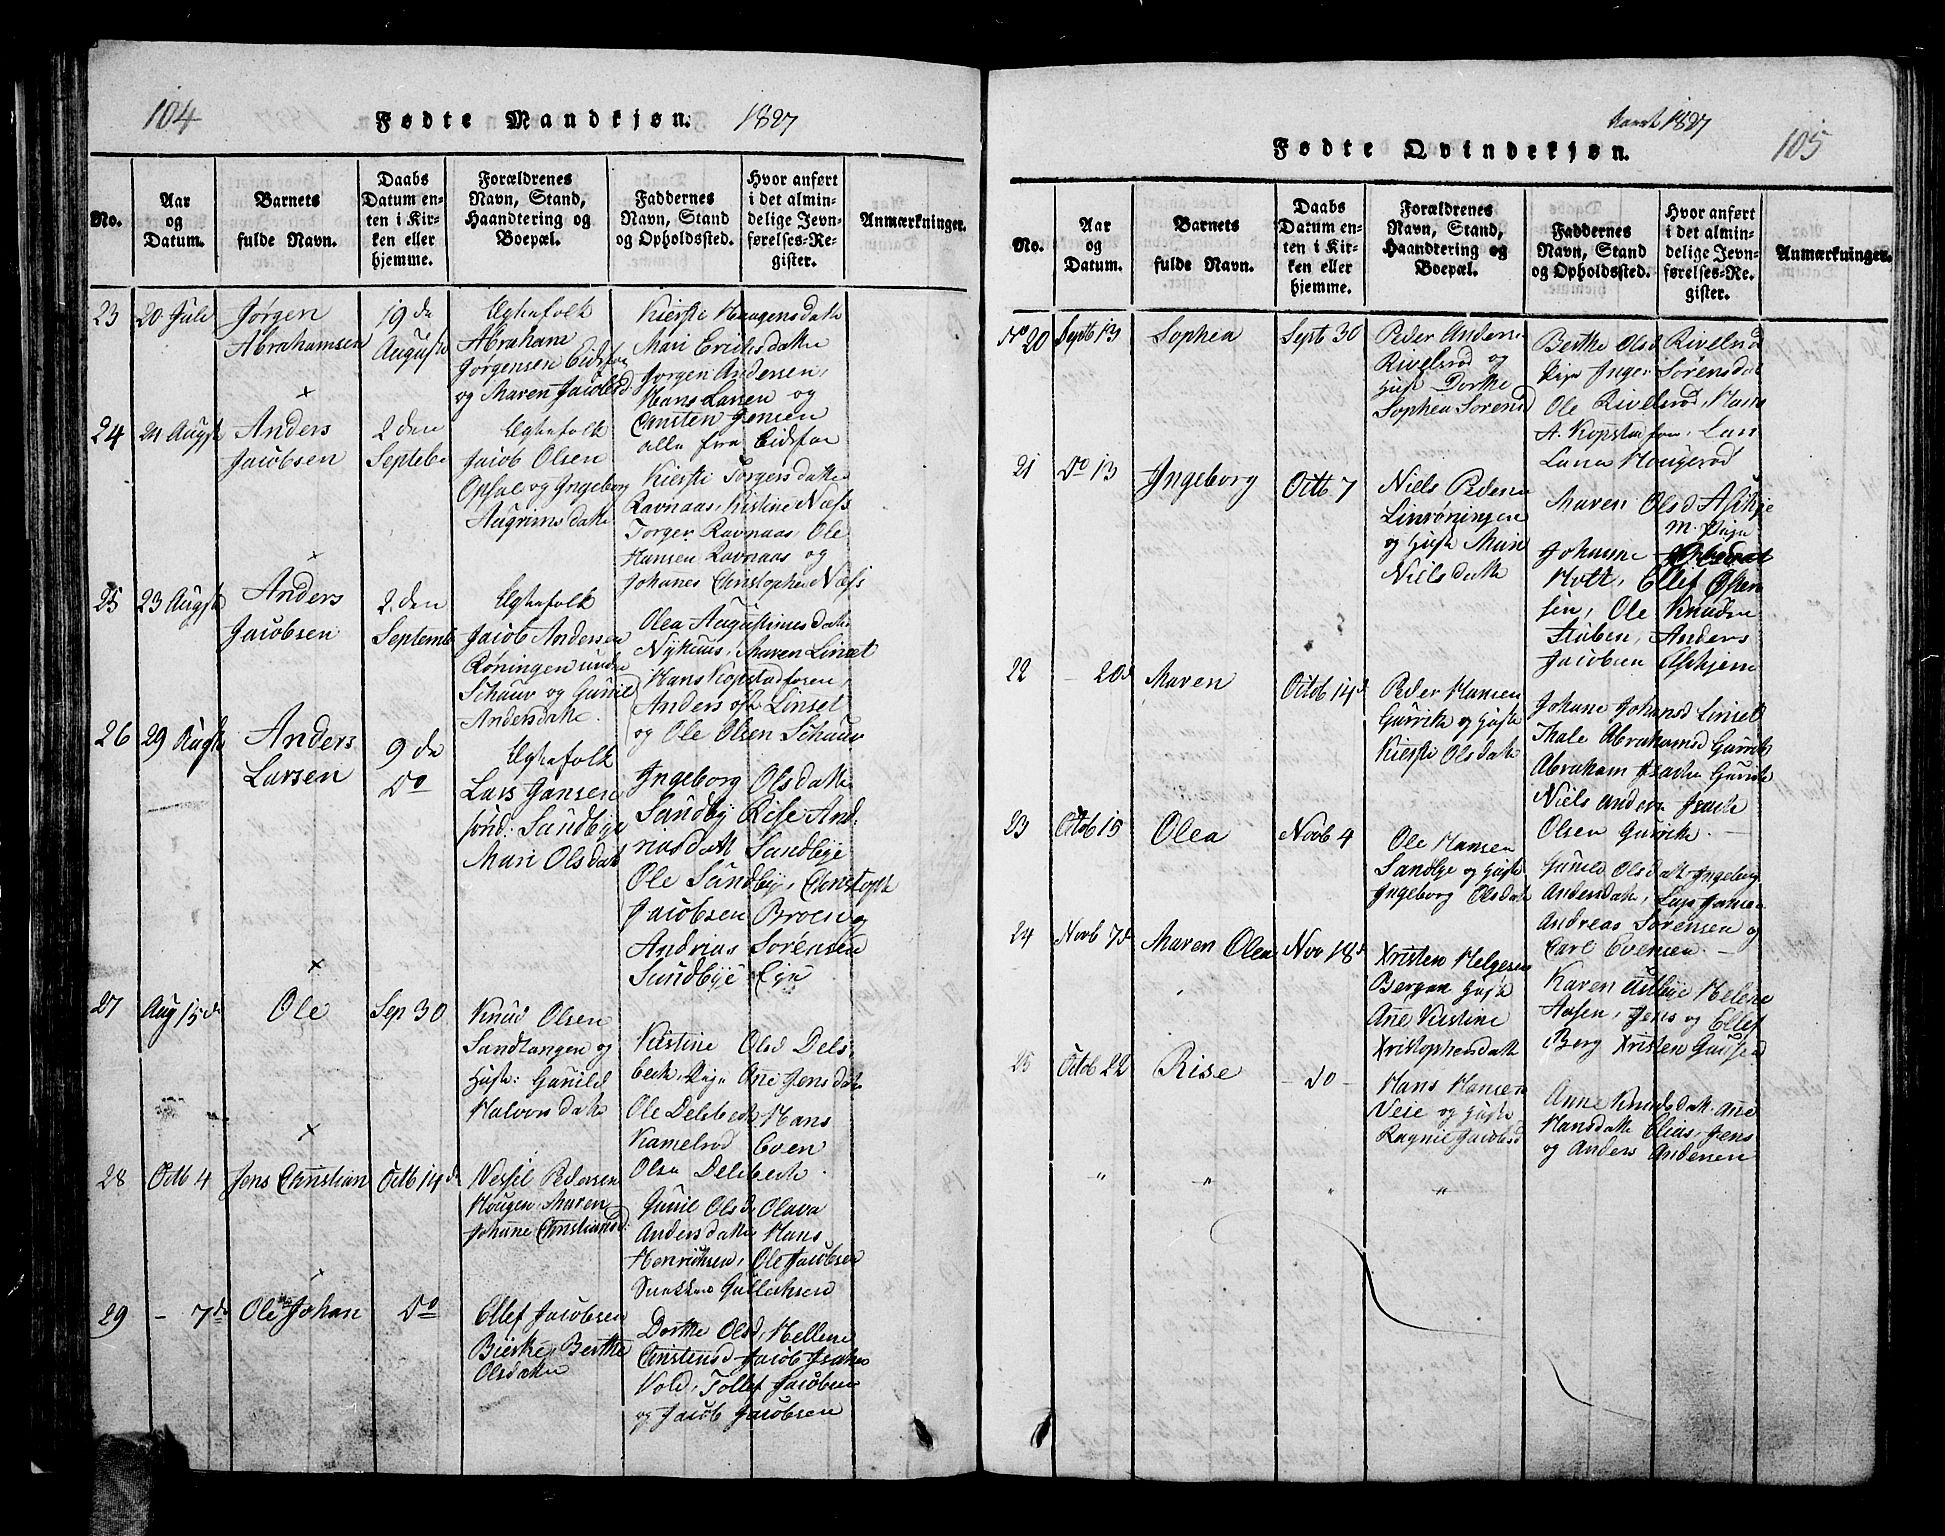 104
Fødte Mandkjøn. 1827
No.
Aar
og
Datum.
Barnets
fulde Navn.
Daabs
Datum en-
ten i Kir-
ken eller
hjemme.
Forældrenes
Navn, Stand,
Haandtering og
Boepæl.
Faddernes
Navn, Stand
og Opholdssted.
Hvor anført
i det almin-
delige Jevn-
førelses-Re-
gister.
Anmærkninger.
23
20 Juli
Jørgen
Abrahamsen
19 de
August
Ægtefolk
Abraham
Jørgensen Eidsfos
og Maren Jacobsd
Kierstie Haagensdatte
Mari Ericksdatte
Jørgen Andersen,
Hans Larsen og
Christen Jensen
alle fra Eidsfos
24
21 Augst
Anders
Jacobsen
2 den
Septeb
Ægtefolk
Jacob Olsen
Opsal og Ingeborg
Augrimsdatte
Kiersti Torgersdatte
Ravnaas, Kistine Næss
Torger Ravnaas, Ole
Hansen Ravnaas og
Johanes Christophe Næss
25
23 Augst
Anders
Jacobsen
2. den
Septemb
Ægtefolk
Jacob Andersen
Røningen unde
Schauv og Gunil
Andersdatte.
Olea Augustinusdatte
Nyhuus, Maren Linset
Hans Kopstadfosen,
Anders ofl Linset
og Ole Olsen Schauv
26
29 Augst
Anders
Larsen
9 de
do
Ægtefolk
Lars Jansen
Sønd: Sandbye
Mari Olsdat
Ingeborg Olsdatte
Sandby Rise And-
riasdatt Sandbye
Ole Sandby, Christoph
Jacobsen Broes og
Andrias Sørensen
Sundbye Eye
27
Aug 15de
Ole
Sep 30
Knud Olsen
Sandtangen og
Hust: Gunild
Halvorsdatte
Kistine Olsd Dels
beck, Pige Ane Jensdat
Ole Delsbeck Hans
Kamelrød Even
Olsen Delsbeck
28
Octb 4
Jens Christian
Octb 14d
Nessel Pedersen
Hougen Maren
Johane Christiansd:
Gunil Olsd Olava
Andersdatte Hans
Henricksen, Ole Jacobsen
Gullicksen
29
– 7de
Ole Johan
do
Ellef Jacobsen
Bierke, Berthe
Olsdatte
Dorthe Olsd, Hellene
Christensd Jacob Isaksen
Vold, Tollef Jacobsen
og Jacob Jacobsen
105
Aaret 1827
Fødte Qvindekjøn.
No.
Aar
og
Datum.
Barnets
fulde Navn.
Daabs
Datum en-
ten i Kir-
ken eller
hjemme.
Forældrenes
Navn, Stand,
Haandtering og
Boepæl.
Faddernes
Navn, Stand
og Opholdssted.
Hvor anført
i det almin-
delige Jevn-
førelses-Re-
gister.
Anmærkninger.
No 20
Septb 13
Sophea
Septb 30
Peder Anderse
Rivelsrød og
Hust Dorthe
Sophea Sørensd
Berthe Olsd Rivelsrød
Pige Inger Sørensdat
Ole Rivelsrød, Hans
A. Kopstadfosen, Lars
Larsen Hougerød
21
do 13
Ingeborg
Octb 7
Niels Pederse
Linrøningen
og Hust Mari
Nielsdatte
Maren Olsd Askje
m. Pige
Johanne Olsdat
Holt, Ellef Espen
sen, Ole Knudse
Stuben, Anders
Jacobsen Askjem
22
– 20d
Maren
Octob 14d
Peder Hansen
Gurrik og Hust
Kierstie Olsdatte
Johane Johansd Linset
Thale Abrahamsd Gurrik
Abraham Isachs Gurrik
Niels Anders Isach
Olsen Gurrik. –
23
Octob 15
Olea
Novb 4
Ole Hansen
Sandbye og Hust
Ingeborg Olsdat
Gunild Olsdatt Ingeborg
Andersdatte, Lars Jansen
Andreas Sørensen og
Carl Evensen. –
24
Novb 7d
Maren Olea
Nov 18d
Xristen Helgesen
Bergan Hust
Ane Kirstine
Xristophersdatte
Karen Helene
Aasen, Jens og Ellef
Berg Xristen
25
Octob 22
Rise
– do –
Hans Hansen
Veie og Hust
Ragnil Jacobsd
Anne Knudsdatt. Ane
Hansdatte Elias, Jens
og Anders Andersen